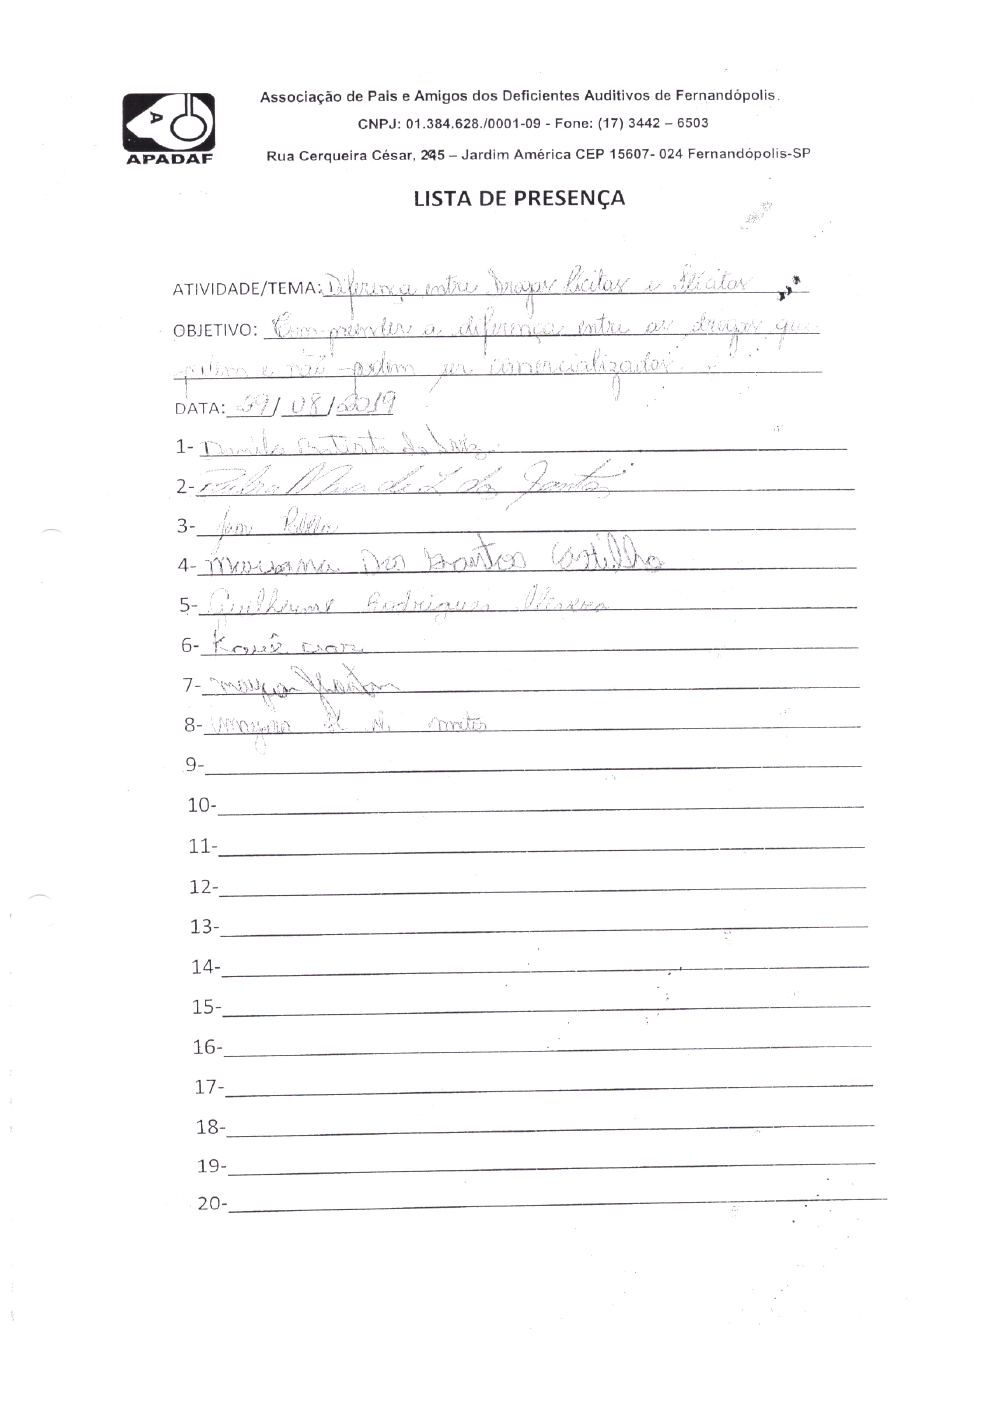 Associação de Pais e Amigos dos Deficientes Auditivos de Fernandópolis.
CNPJ: 01.384.628./0001-09 - Fone: (17) 3442 – 6503
APADAF
Rua Cerqueira César, 245 – Jardim América CEP 15607- 024 Fernandópolis-SP
LISTA DE PRESENÇA
ATIVIDADE/TEMA: Diferença entre Drogas Lícitas e Ilícitas
OBJETIVO: Compreender a diferença entre as drogas que
podem e não podem ser comercializadas.
DATA: 29/08/2019
1- Batista da
2- de L. dos Santos
3-
4- Mariana Dos Santos Castilho
5- Guilherme Rodrigues Oliveira
6- Kauê
7- Mayra
8-
9-
10-
11-
12-
13-
14-
15-
16-
17-
18-
19-
20-